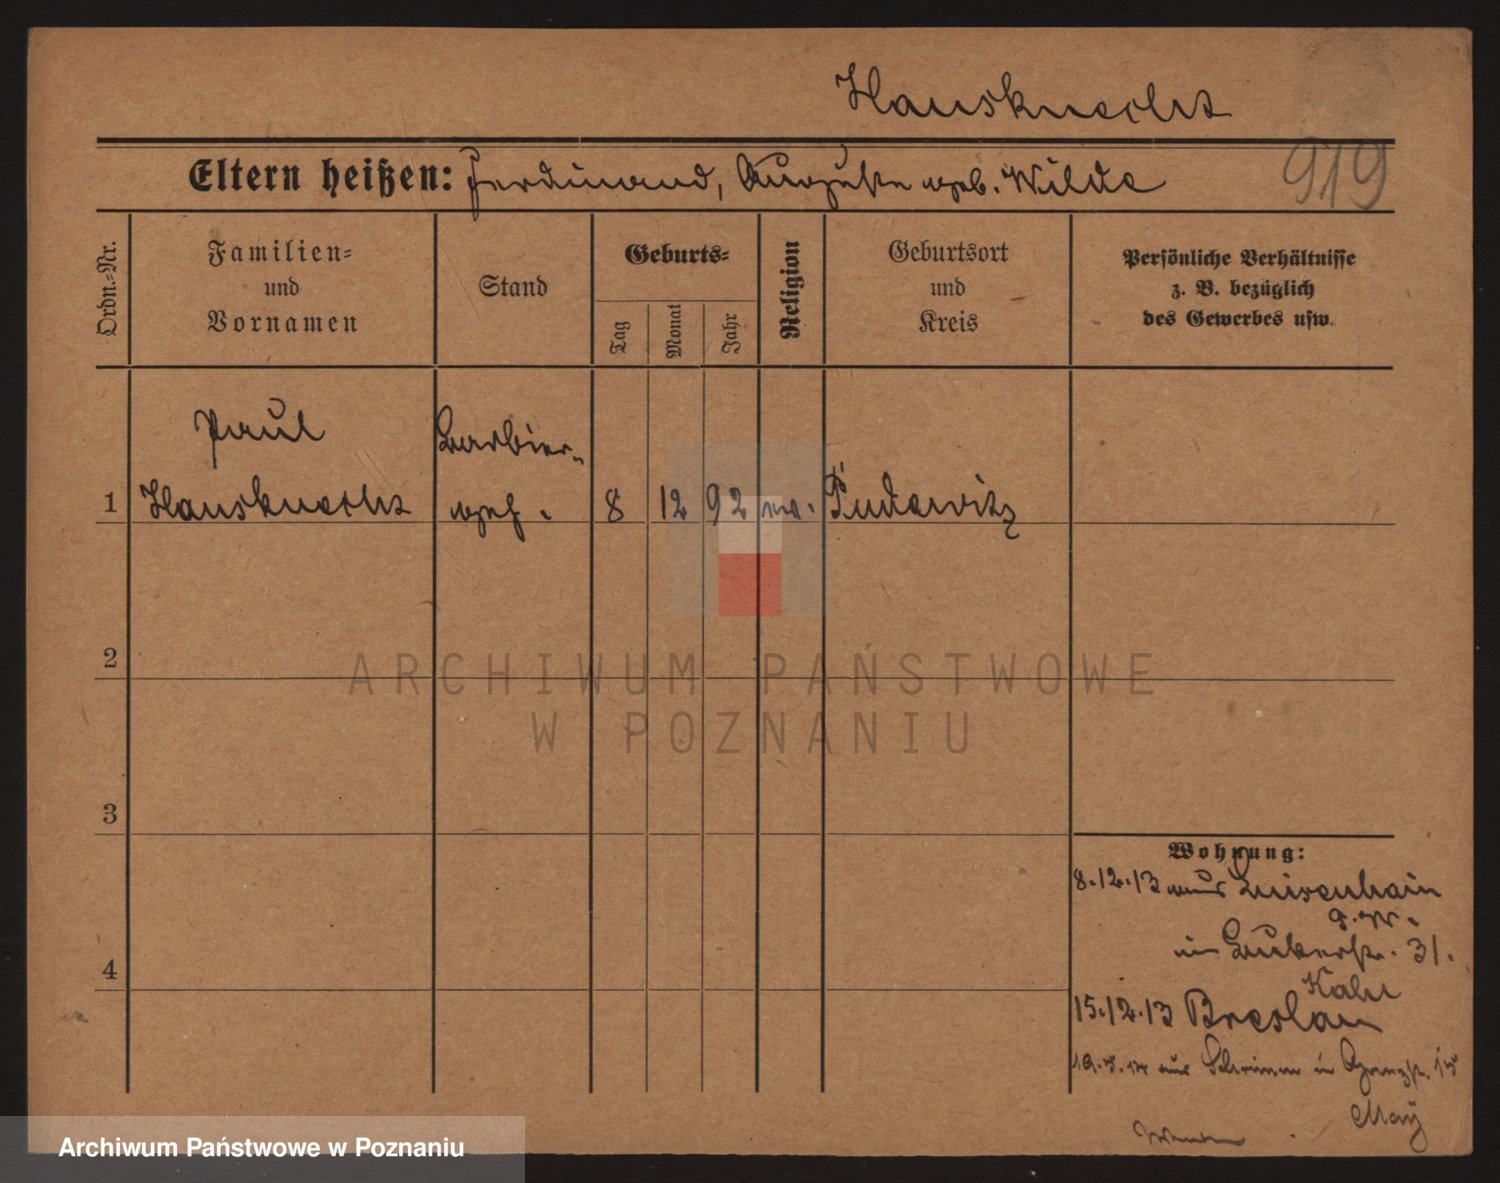 Hausknecht
919
Eltern heißen: Ferdinand, Auguste geb. Wilde
Ordn.-Nr.
Familien-
und
Vornamen
Stand
Geburts-
Tag
Monat
Jahr
Religion
Geburtsort
und
Kreis
Persönliche Verhältnisse
z. B. bezüglich
des Gewerbes usw.
Paul
Hausknecht
Barbier-
geh.
1
8
12
92
ev.
Pudewitz
2
3
4
ARCHIWUM PAŃSTWOWE
W POZNANIU
Wohnung:
8.12.13 aus Luisenhain
in Bukerstr. 31.
15.12.13 Breslau
aus Schrimm in Grenzstr. 15
May
Archiwum Państwowe w Poznaniu